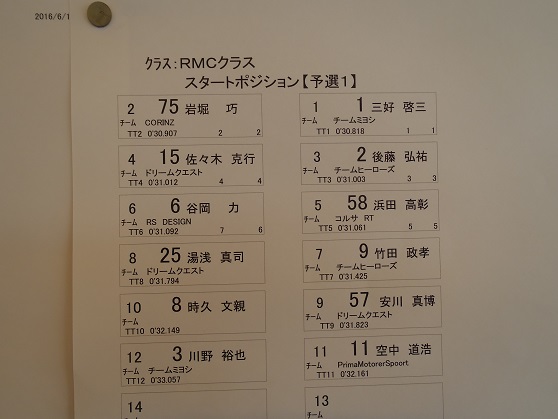 2016/6/1
クラス:RMCクラス
スタートポジション【予選1】
2 75 岩堀 巧
チーム CORINZ
TT2 0'30.907 2 2
1 1 三好 啓三
チーム チームミヨシ
TT1 0'30.818 1 1
4 15 佐々木 克行
チーム ドリームクエスト
TT4 0'31.012 4 4
3 2 後藤 弘祐
チーム チームヒーローズ
TT3 0'31.003 3 3
6 6 谷岡 力
チーム RS DESIGN
TT6 0'31.092 7 6
5 58 浜田 高彰
チーム コルサ RT
TT5 0'31.061 5 5
8 25 湯浅 真司
チーム ドリームクエスト
TT8 0'31.794
7 9 竹田 政孝
チーム チームヒーローズ
TT7 0'31.425
10 8 時久 文親
チーム
TT10 0'32.149
9 57 安川 真博
チーム ドリームクエスト
TT9 0'31.823
12 3 川野 裕也
チーム チームミヨシ
TT12 0'33.057
11 11 空中 道浩
チーム PrimaMotorerSpoort
TT11 0'32.161
14
13
チーム